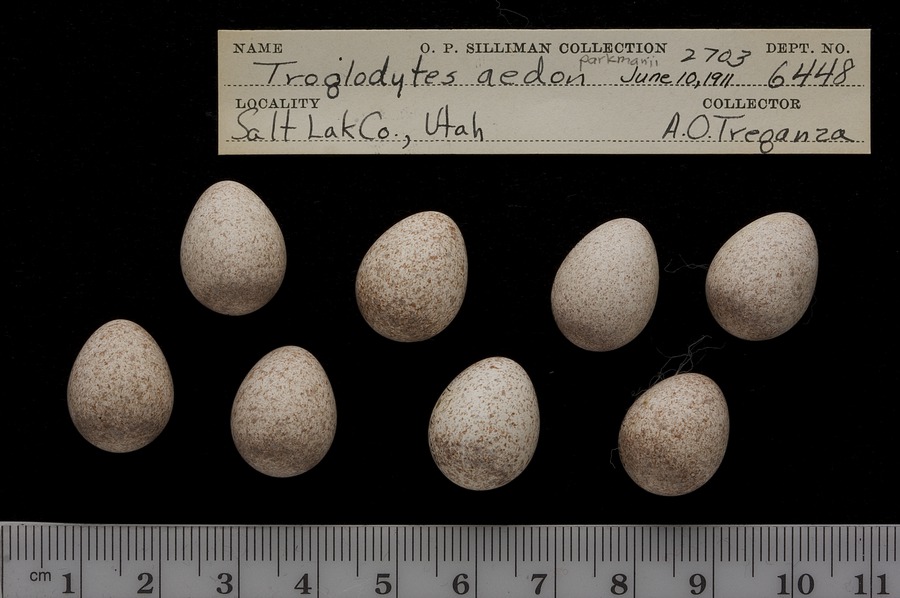 NAME O. P. SILLIMAN COLLECTION 2703 DEPT. NO.
Troglodytes aedon parkmanii June 10, 1911 6448
LOCALITY COLLECTOR
Salt Lak Co., Utah A.O. Treganza
cm 1 2 3 4 5 6 7 8 9 10 11